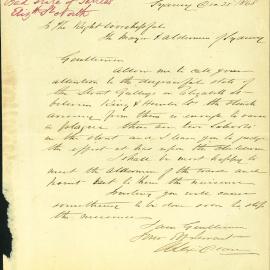 Bad State of Streets
Eliz.th St North
Sydney Dec 28 1868
To The Right Worshipful
The Mayor & Aldermen of Sydney
Gentlemen
Allow me to call your
attention to the disgraceful state of
the Street Gulleys in Elizabeth St
between King & Hunter St the stench
arising from them is enough to cause
a plague. There are two Schools
in the street and I leave you to judge
the effect it has upon the children
I shall be most happy to
meet the aldermen of the ward and
point out to them the nuisance
Trusting you will cause
something to be done soon to stop
the nuisance
I am Gentlemen
Your Obt Servant